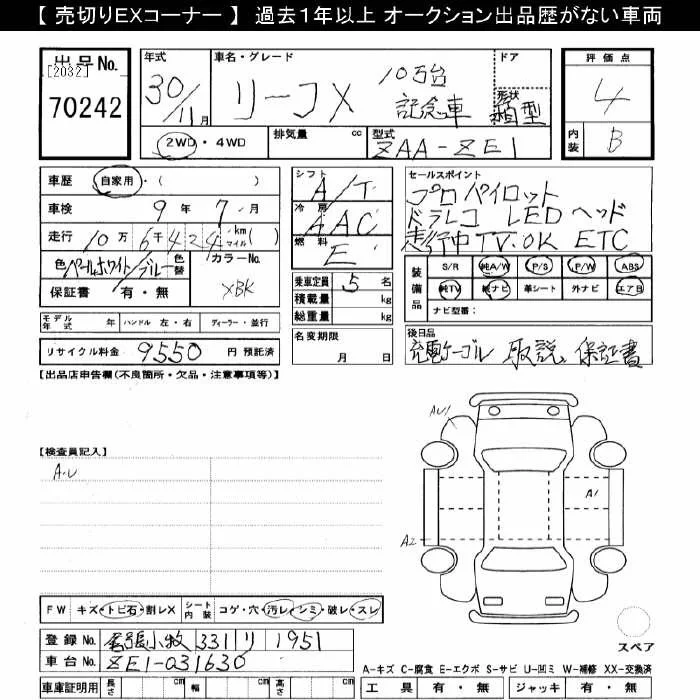 【 売切りEXコーナー 】 過去1年以上 オークション出品歴がない車両
出品No.
[2032]
70242
年式
30/11月
車名・グレード
リーフX
10万台
記念車
ドア
形状
箱型
2WD・4WD
排気量 cc
型式
ZAA-ZE1
評価点
4
内装
B
車歴 自家用・( )
車検 9年7月
走行 10万6千424 km マイル( )
色 パールホワイト/ブルー 色替 カラーNo.
XBK
保証書 有・無
モデル年式 年 ハンドル 左・右 ディーラー・並行
リサイクル料金 9550 円 預託済
シフト
A/T
冷房
AAC
燃料
E
乗車定員 5 名
積載量 kg
総重量 kg
名変期限
月 日
セールスポイント
プロパイロット
ドラレコ LEDヘッド
走行中TV.OK ETC
装備品
S/R 純A/W P/S P/W ABS
純TV 純ナビ 革シート 外ナビ エアB
ナビ型番:
後日品
充電ケーブル 取説、保証書
【出品店申告欄(不良箇所・欠品・注意事項等)】
【検査員記入】
A.U
AU1
A1
A2
FW キズ・トビ石・割レX シート内装 コゲ・穴・汚レ・シミ・破レ・スレ
登録No. 尾張小牧 331 リ 1951
車台No. ZE1-031630
車庫証明用 長さ cm 幅 cm 高さ cm
スペア
A-キズ C-腐食 E-エクボ S-サビ U-凹ミ W-補修 XX-交換済
工具 有・無 ジャッキ 有・無